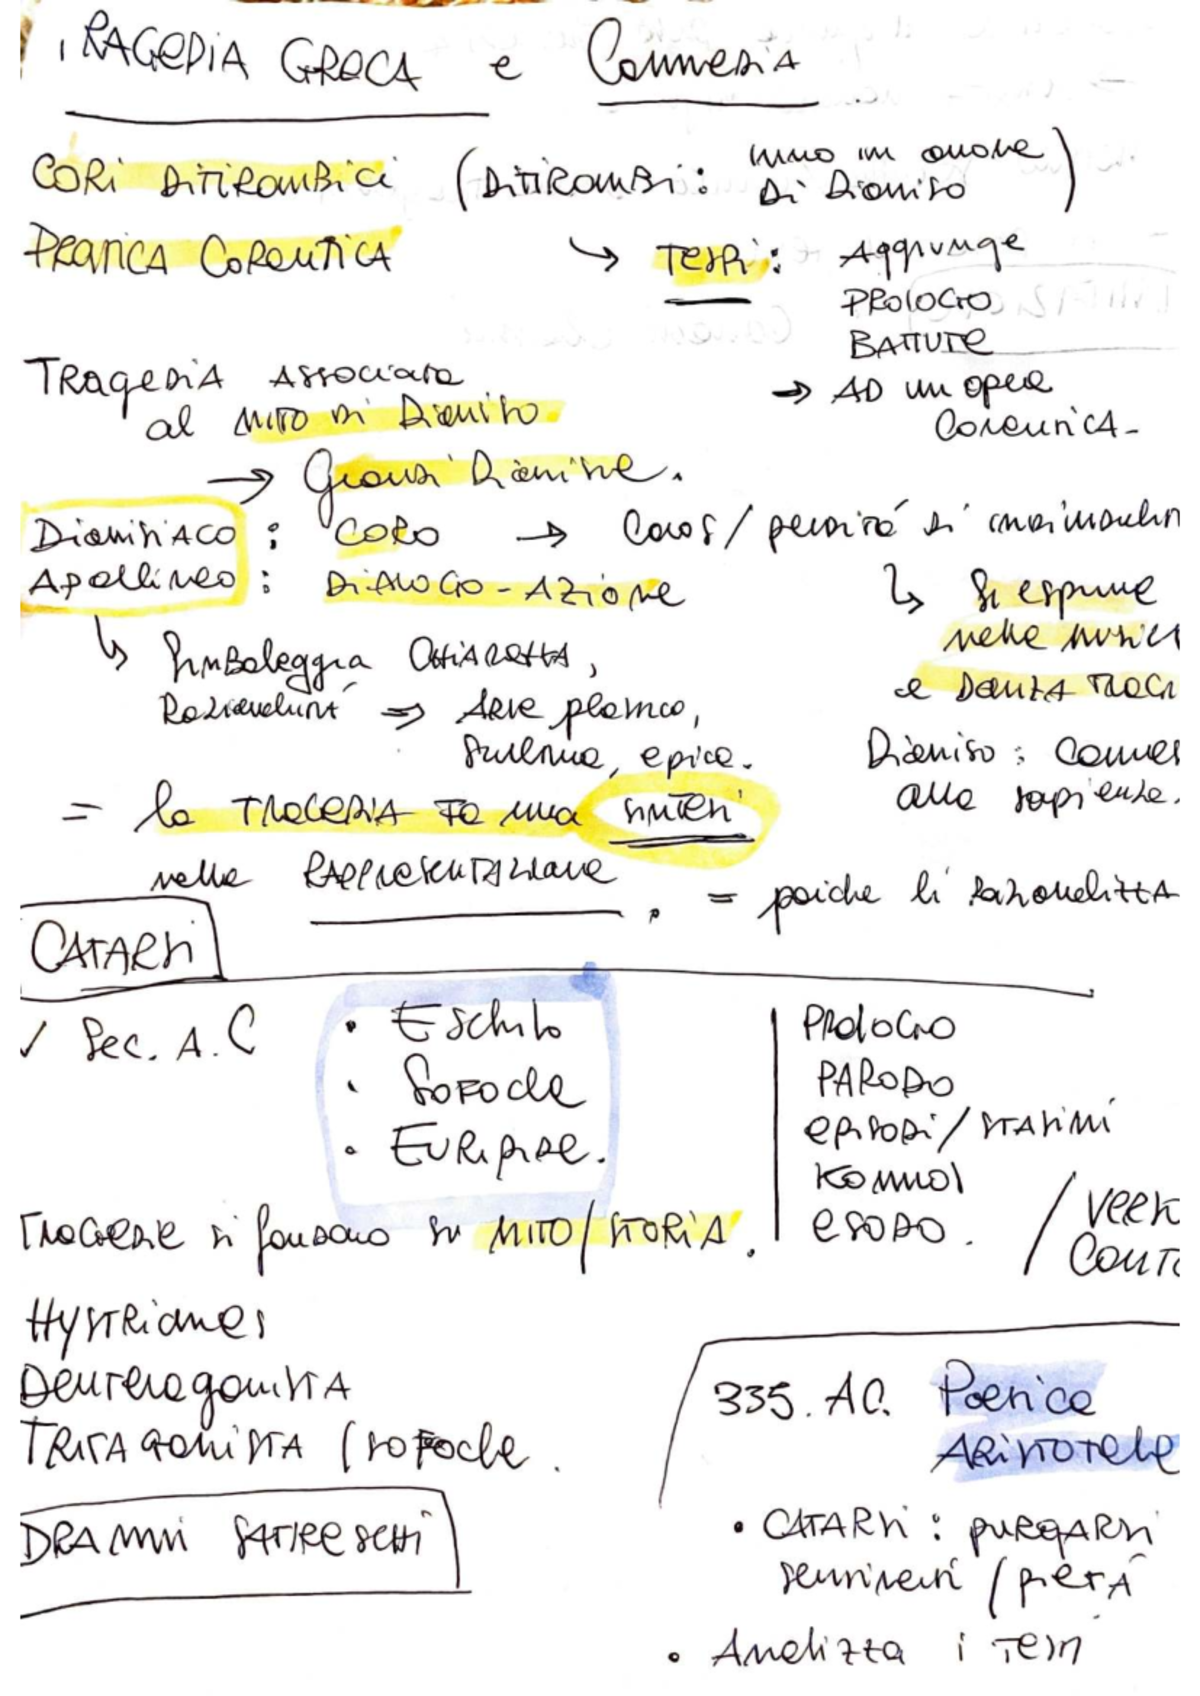 TRAGEDIA GRECA e Commedia
CORI DITIRAMBICI (DITIRAMBI: inno in onore
di Dioniso)
PRATICA COREUTICA
→ TESPI: Aggiunge
PROLOGO
BATTUTE
⇒ AD un opera
Coreutica -
TRAGEDIA Associata
al MITO DI Dioniso.
→ Grandi Dionisie.
DionisiACO : CORO → Caos / perdita di
Apollineo : DiALOGO - AZione
↳ Si esprime
nella music
e DANZA TRAGI
↳ Simboleggia CHIAREZZA,
Razionalità ⇒ Arte plastica,
scultura, epica.
Dioniso : Connes
alla sapienza.
= la TRAGEDIA FA una SINTESI
nella RAPPRESENTAZIONE. = poiche li razionalizzA
CATARSI
V Sec. A.C
• Eschilo
• Sofocle
• EURIPIDE.
PROLOGO
PARODO
EPISODI / STASIMI
KOMMOI
ESODO.
/ VERSI
CONT
TRAGEDIE si fondano su MITO / STORIA.
HYSTRiones
Deuteragonista
TRITAGONISTA (SOFOcle.
DRAMMI SATIRESCHI
335. AC. Poetica
ARISTOTELE
• CATARSI : PURGARSI
sentimenti / pietà
• Analizza i TESTI